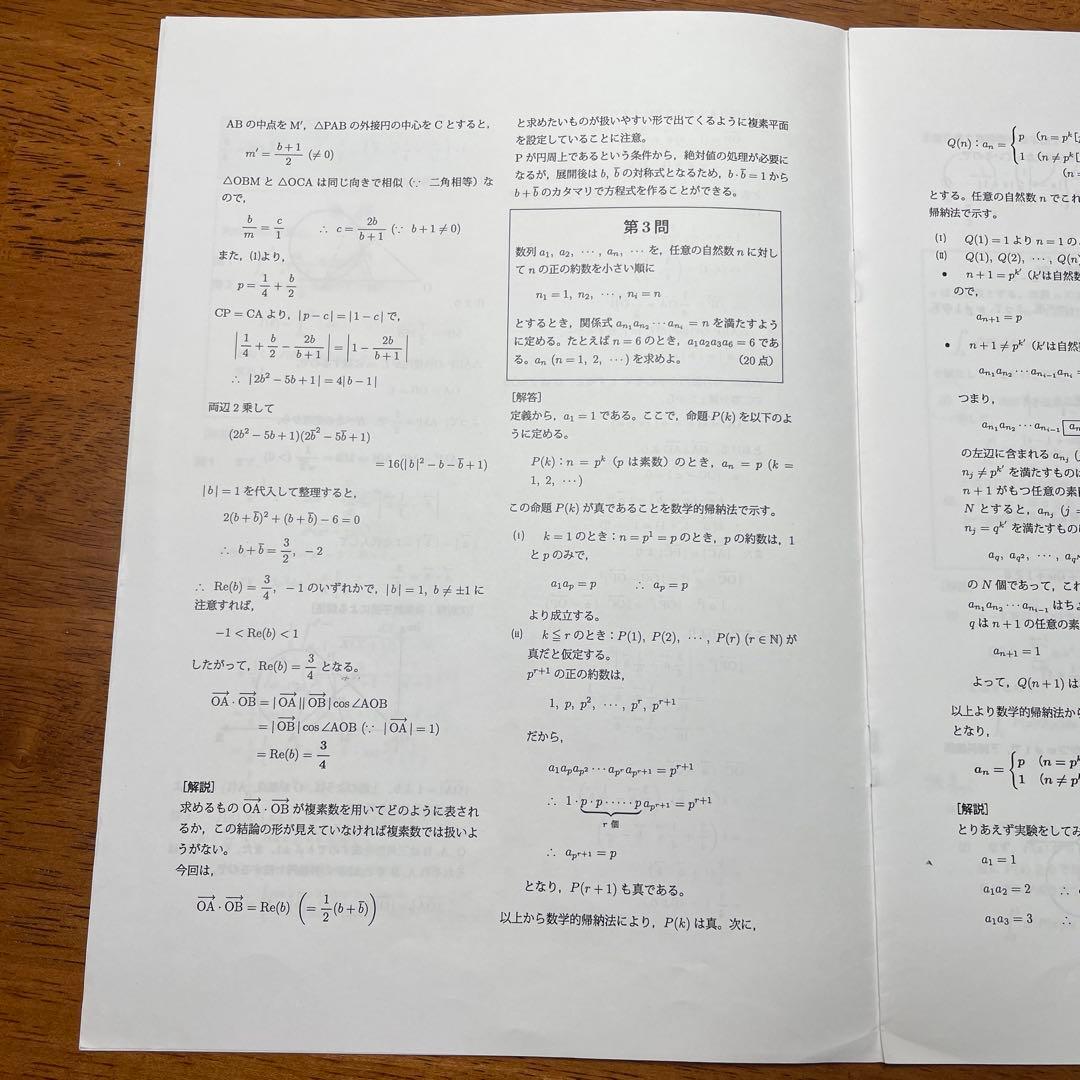 AB の中点を M′,△PAB の外接円の中心を C とすると,
m′ = (b+1)/2 (≠0)
△OBM と △OCA は同じ向きで相似 (∵ 二角相等) な
ので,
b/m = c/1 ∴ c = 2b/(b+1) (∵ b+1≠0)
また,(1)より,
p = 1/4 + b/2
CP=CA より,|p−c|=|1−c| で,
|1/4 + b/2 − 2b/(b+1)| = |1 − 2b/(b+1)|
∴ |2b²−5b+1|=4|b−1|
両辺 2 乗して
(2b²−5b+1)(2b̄²−5b̄+1)
=16(|b|²−b−b̄+1)
|b|=1 を代入して整理すると,
2(b+b̄)²+(b+b̄)−6=0
∴ b+b̄= 3/2, −2
∴ Re(b)= 3/4, −1 のいずれかで,|b|=1, b≠±1 に
注意すれば,
−1<Re(b)<1
したがって,Re(b)= 3/4 となる。
OA→・OB→=|OA→||OB→|cos∠AOB
=|OB→|cos∠AOB (∵ |OA→|=1)
=Re(b)= 3/4
[解説]
求めるもの OA→・OB→ が複素数を用いてどのように表され
るか,この結論の形が見えていなければ複素数では扱いよ
うがない。
今回は,
OA→・OB→=Re(b) (= 1/2 (b+b̄))
と求めたいものが扱いやすい形で出てくるように複素平面
を設定していることに注意。
P が円周上であるという条件から,絶対値の処理が必要に
なるが,展開後は b, b̄ の対称式となるため,b・b̄=1 から
b+b̄ のカタマリで方程式を作ることができる。
第3問
数列 a₁, a₂, ⋯, aₙ, ⋯ を,任意の自然数 n に対し
て n の正の約数を小さい順に
n₁=1, n₂, ⋯, nᵢ=n
とするとき,関係式 a_{n₁}a_{n₂}⋯a_{nᵢ}=n を満たすよう
に定める。たとえば n=6 のとき,a₁a₂a₃a₆=6 であ
る。aₙ (n=1, 2, ⋯) を求めよ。 (20点)
[解答]
定義から,a₁=1 である。ここで,命題 P(k) を以下のよ
うに定める。
P(k):n=pᵏ (p は素数) のとき,aₙ=p (k=
1, 2, ⋯)
この命題 P(k) が真であることを数学的帰納法で示す。
(i) k=1 のとき:n=p¹=p のとき,p の約数は,1
と p のみで,
a₁aₚ=p ∴ aₚ=p
より成立する。
(ii) k≦r のとき:P(1), P(2), ⋯, P(r) (r∈ℕ) が
真だと仮定する。
p^{r+1} の正の約数は,
1, p, p², ⋯, pʳ, p^{r+1}
だから,
a₁a_{p}a_{p²}⋯a_{pʳ}a_{p^{r+1}}=p^{r+1}
∴ 1・p・p・⋯・p a_{p^{r+1}}=p^{r+1}
r 個
∴ a_{p^{r+1}}=p
となり,P(r+1) も真である。
以上から数学的帰納法により,P(k) は真。次に,
Q(n):aₙ={p (n=pᵏ[
1 (n≠pᵏ[
(n=
とする。任意の自然数 n でこれ
帰納法で示す。
(i) Q(1)=1 より n=1 の
(ii) Q(1), Q(2), ⋯, Q(n
• n+1=p^{k′} (k′は自然数
ので,
aₙ₊₁=p
• n+1≠p^{k′} (k′は自然
a_{n₁}a_{n₂}⋯a_{nᵢ₋₁}a_{nᵢ}=
つまり,
a_{n₁}a_{n₂}⋯a_{nᵢ₋₁}
の左辺に含まれる a_{nⱼ} (
nⱼ≠p^{k′} を満たすものは
n+1 がもつ任意の素
N とすると,a_{nⱼ} (j=
nⱼ=q^{k′} を満たすもの
a_{q}, a_{q²}, ⋯,
の N 個であって,これ
a_{n₁}a_{n₂}⋯a_{nᵢ₋₁} はちょ
q は n+1 の任意の素
aₙ₊₁=1
よって,Q(n+1) は
以上より数学的帰納法から
となり,
aₙ={p (n=pᵏ
1 (n≠pᵏ
[解説]
とりあえず実験をしてみ
a₁=1
a₁a₂=2 ∴
a₁a₃=3 ∴